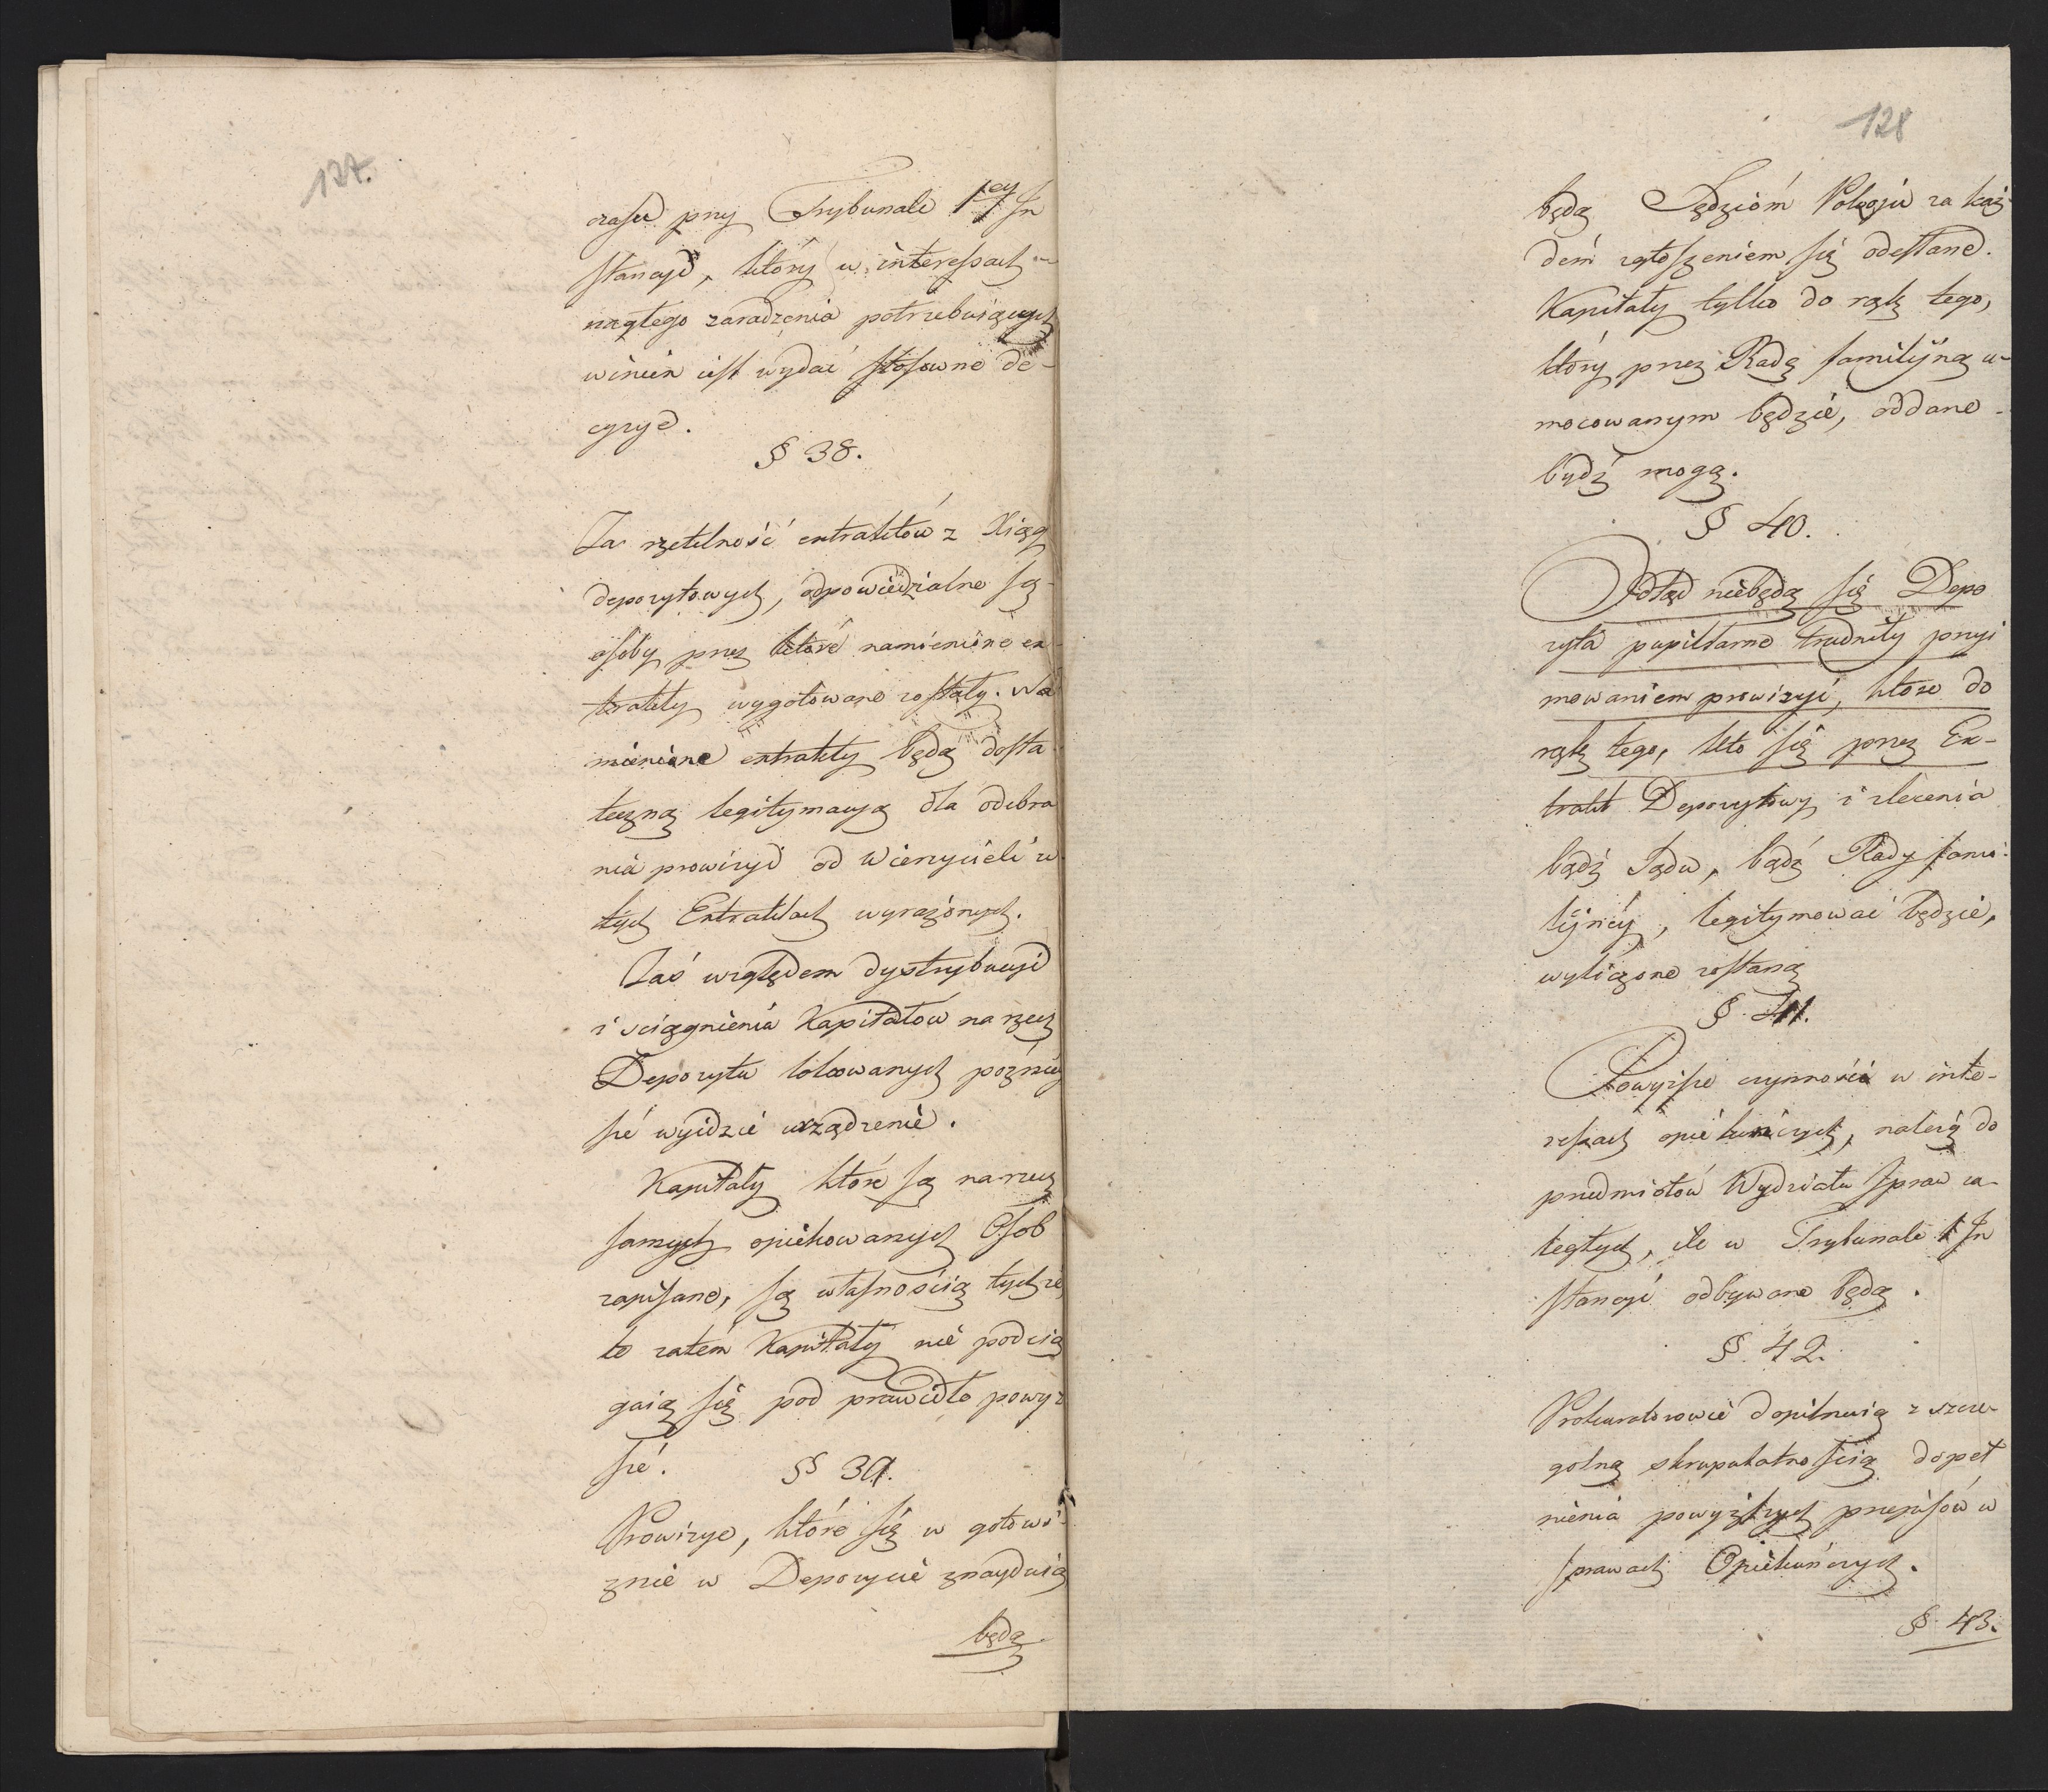 127.
czasu przy Trybunale 1ey In
stancyi, który w interessach
nagłego zaradzenia potrzebuiących
winien iest wydać stosowne de-
cyzye.
§ 38.
Za rzetelność extraktów z Xiąg
depozytowych, odpowiedzialne są
osoby przez które namienione ex-
trakty wygotowane zostały. Na
mienione extrakty będą dosta
teczną legitymacyą dla odebra
nia prowizyi od Wierzycieli w
tych Extraktach wyrażonych.
Zaś względem dystrybucyi
i ściągnienia Kapitałów na rzecz
Depozytu lokowanych późniey
sze wyidzie urządzenie.
Kapitały które są na rzecz
samych opiekowanych Osób
zapisane, są własnością tychże,
te zatém Kapitały nie podcią
gaią się pod prawidło powyż
sze.
§ 39.
Prowizye, które się w gotowi-
znie w Depozycie znayduią
będą
128
będą Sędzióm Pokoju za każ-
dém zgłoszeniem się odesłane.
Kapitały tylko do rąk tego,
który przez Radę familijną u-
mocowanym będzie, oddane
bydź mogą.
§ 40.
Odtąd niebędą się Depo
zyta pupillarne trudniły przyi
mowaniem prowizyi, które do
rąk tego, kto się przez Ex-
trakt Depozytowy i zlecenia
bądź Sądu, bądź Rady fami-
lijnéy, legitymować będzie,
wyliczone zostaną
§. 41.
Powyższe czynności w inte-
ressach opiekuńczych, należą do
przedmiotów Wydziału Spraw za-
ległych, ile w Trybunale 1 In
stancyi odbywane będą.
§. 42.
Prokuratorowie dopilnuią z szcze-
gólną skrupulatnością dopeł
nienia powyższych przepisów w
sprawach Opiekuńczych.
§. 43.